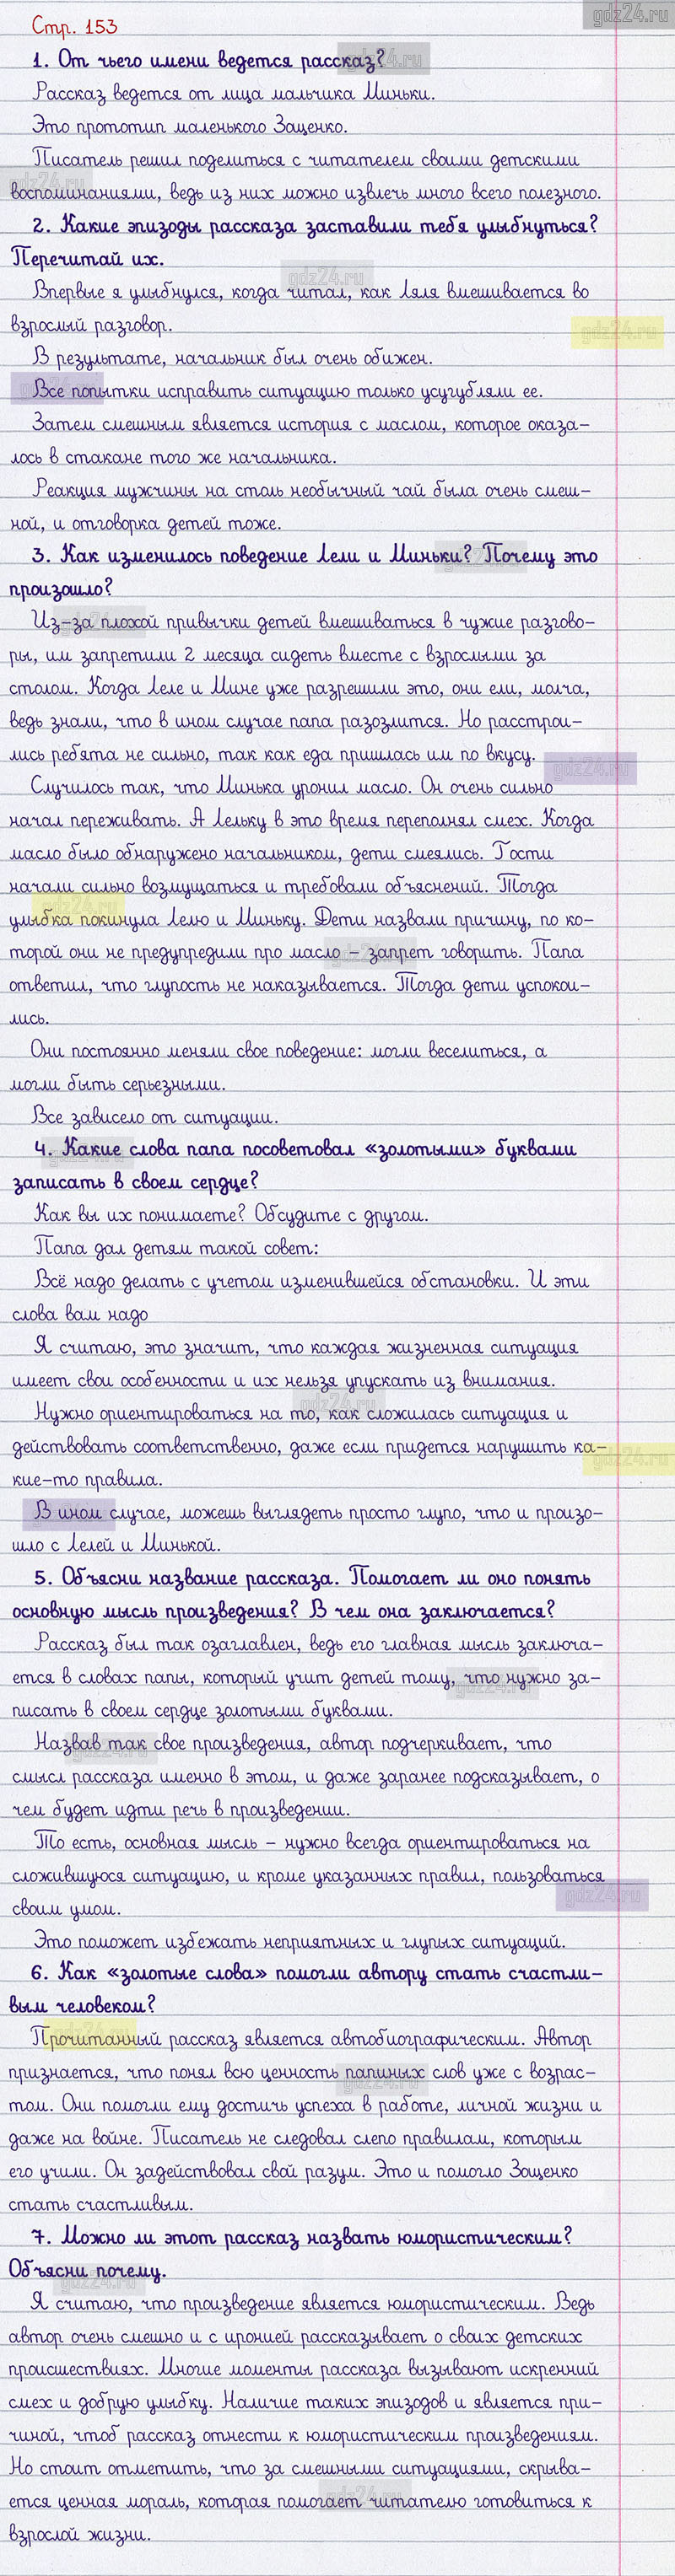 gdz24.ru
Стр. 153
1. От чьего имени ведется рассказ?
Рассказ ведется от лица мальчика Миньки.
Это прототип маленького Защенко.
Писатель решил поделиться с читателем своими детскими
воспоминаниями, ведь из них можно извлечь много всего полезного.
2. Какие эпизоды рассказа заставили тебя улыбнуться?
Перечитай их.
Впервые я улыбнулся, когда читал, как Ляля вмешивается во
взрослый разговор.
В результате, начальник был очень обижен.
Все попытки исправить ситуацию только усугубляли ее.
Затем смешным является история с маслом, которое оказа-
лось в стакане того же начальника.
Реакция мужчины на столь необычный чай была очень смеш-
ной, и отговорка детей тоже.
3. Как изменилось поведение Лели и Миньки? Почему это
произошло?
Из-за плохой привычки детей вмешиваться в чужие разгово-
ры, им запретили 2 месяца сидеть вместе с взрослыми за
столом. Когда Леле и Мине уже разрешили это, они ели, молча,
ведь знали, что в ином случае папа разозлится. Но расстрои-
лись ребята не сильно, так как еда пришлась им по вкусу.
Случилось так, что Минька уронил масло. Он очень сильно
начал переживать. А Лельку в это время переполнял смех. Когда
масло было обнаружено начальником, дети смеялись. Гости
начали сильно возмущаться и требовали объяснений. Тогда
улыбка покинула Лелю и Миньку. Дети назвали причину, по ко-
торой они не предупредили про масло - запрет говорить. Папа
ответил, что глупость не наказывается. Тогда дети успокои-
лись.
Они постоянно меняли свое поведение: могли веселиться, а
могли быть серьезными.
Все зависело от ситуации.
4. Какие слова папа посоветовал «золотыми» буквами
записать в своем сердце?
Как вы их понимаете? Обсудите с другом.
Папа дал детям такой совет:
Всё надо делать с учетом изменившейся обстановки. И эти
слова вам надо
Я считаю, это значит, что каждая жизненная ситуация
имеет свои особенности и их нельзя упускать из внимания.
Нужно ориентироваться на то, как сложилась ситуация и
действовать соответственно, даже если придется нарушить ка-
кие-то правила.
В ином случае, можешь выглядеть просто глупо, что и произо-
шло с Лелей и Минькой.
5. Объясни название рассказа. Помогает ли оно понять
основную мысль произведения? В чем она заключается?
Рассказ был так озаглавлен, ведь его главная мысль заключа-
ется в словах папы, который учит детей тому, что нужно за-
писать в своем сердце золотыми буквами.
Назвав так свое произведения, автор подчеркивает, что
смысл рассказа именно в этом, и даже заранее подсказывает, о
чем будет идти речь в произведении.
То есть, основная мысль - нужно всегда ориентироваться на
сложившуюся ситуацию, и кроме указанных правил, пользоваться
своим умом.
Это поможет избежать неприятных и глупых ситуаций.
6. Как «золотые слова» помогли автору стать счастли-
вым человеком?
Прочитанный рассказ является автобиографическим. Автор
признается, что понял всю ценность папиных слов уже с возрас-
том. Они помогли ему достичь успеха в работе, личной жизни и
даже на войне. Писатель не следовал слепо правилам, которым
его учили. Он задействовал свой разум. Это и помогло Зощенко
стать счастливым.
7. Можно ли этот рассказ назвать юмористическим?
Объясни почему.
Я считаю, что произведение является юмористическим. Ведь
автор очень смешно и с иронией рассказывает о своих детских
происшествиях. Многие моменты рассказа вызывают искренний
смех и добрую улыбку. Наличие таких эпизодов и является при-
чиной, чтоб рассказ отнести к юмористическим произведениям.
Но стоит отметить, что за смешными ситуациями, скрыва-
ется ценная мораль, которая помогает читателю готовиться к
взрослой жизни.